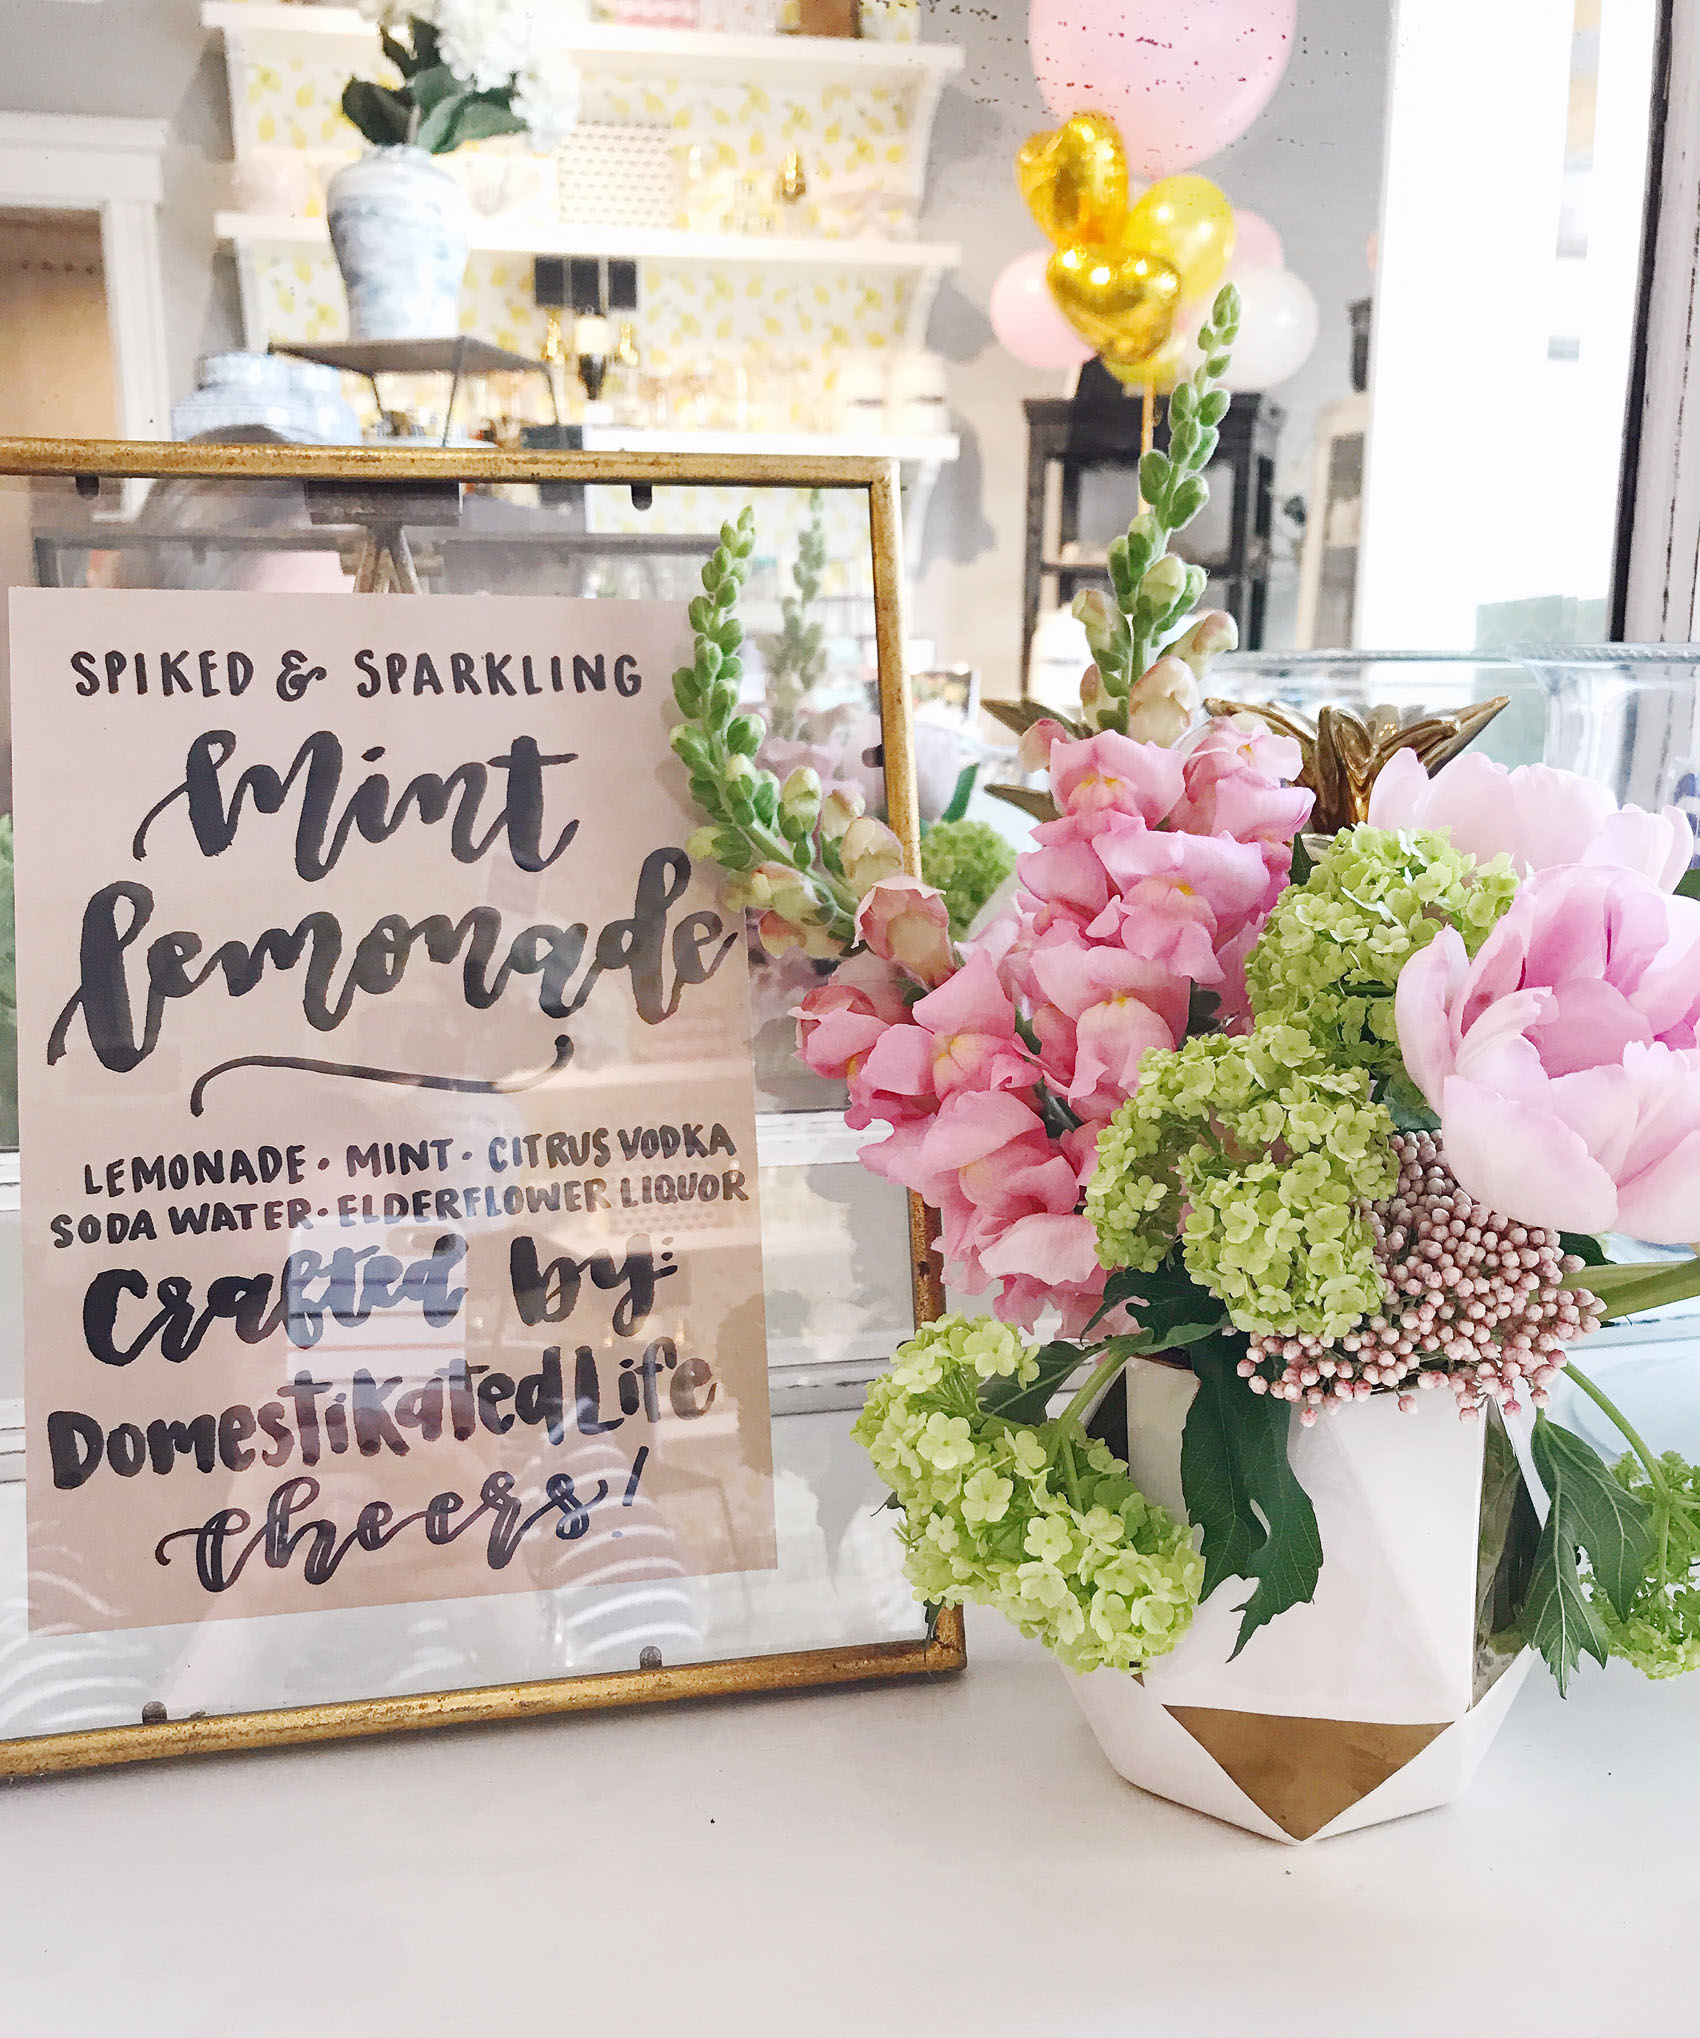 SPIKED & SPARKLING
Mint
lemonade
LEMONADE · MINT · CITRUS VODKA
SODA WATER · ELDERFLOWER LIQUOR
Crafted by:
DomestikatedLife
cheers!